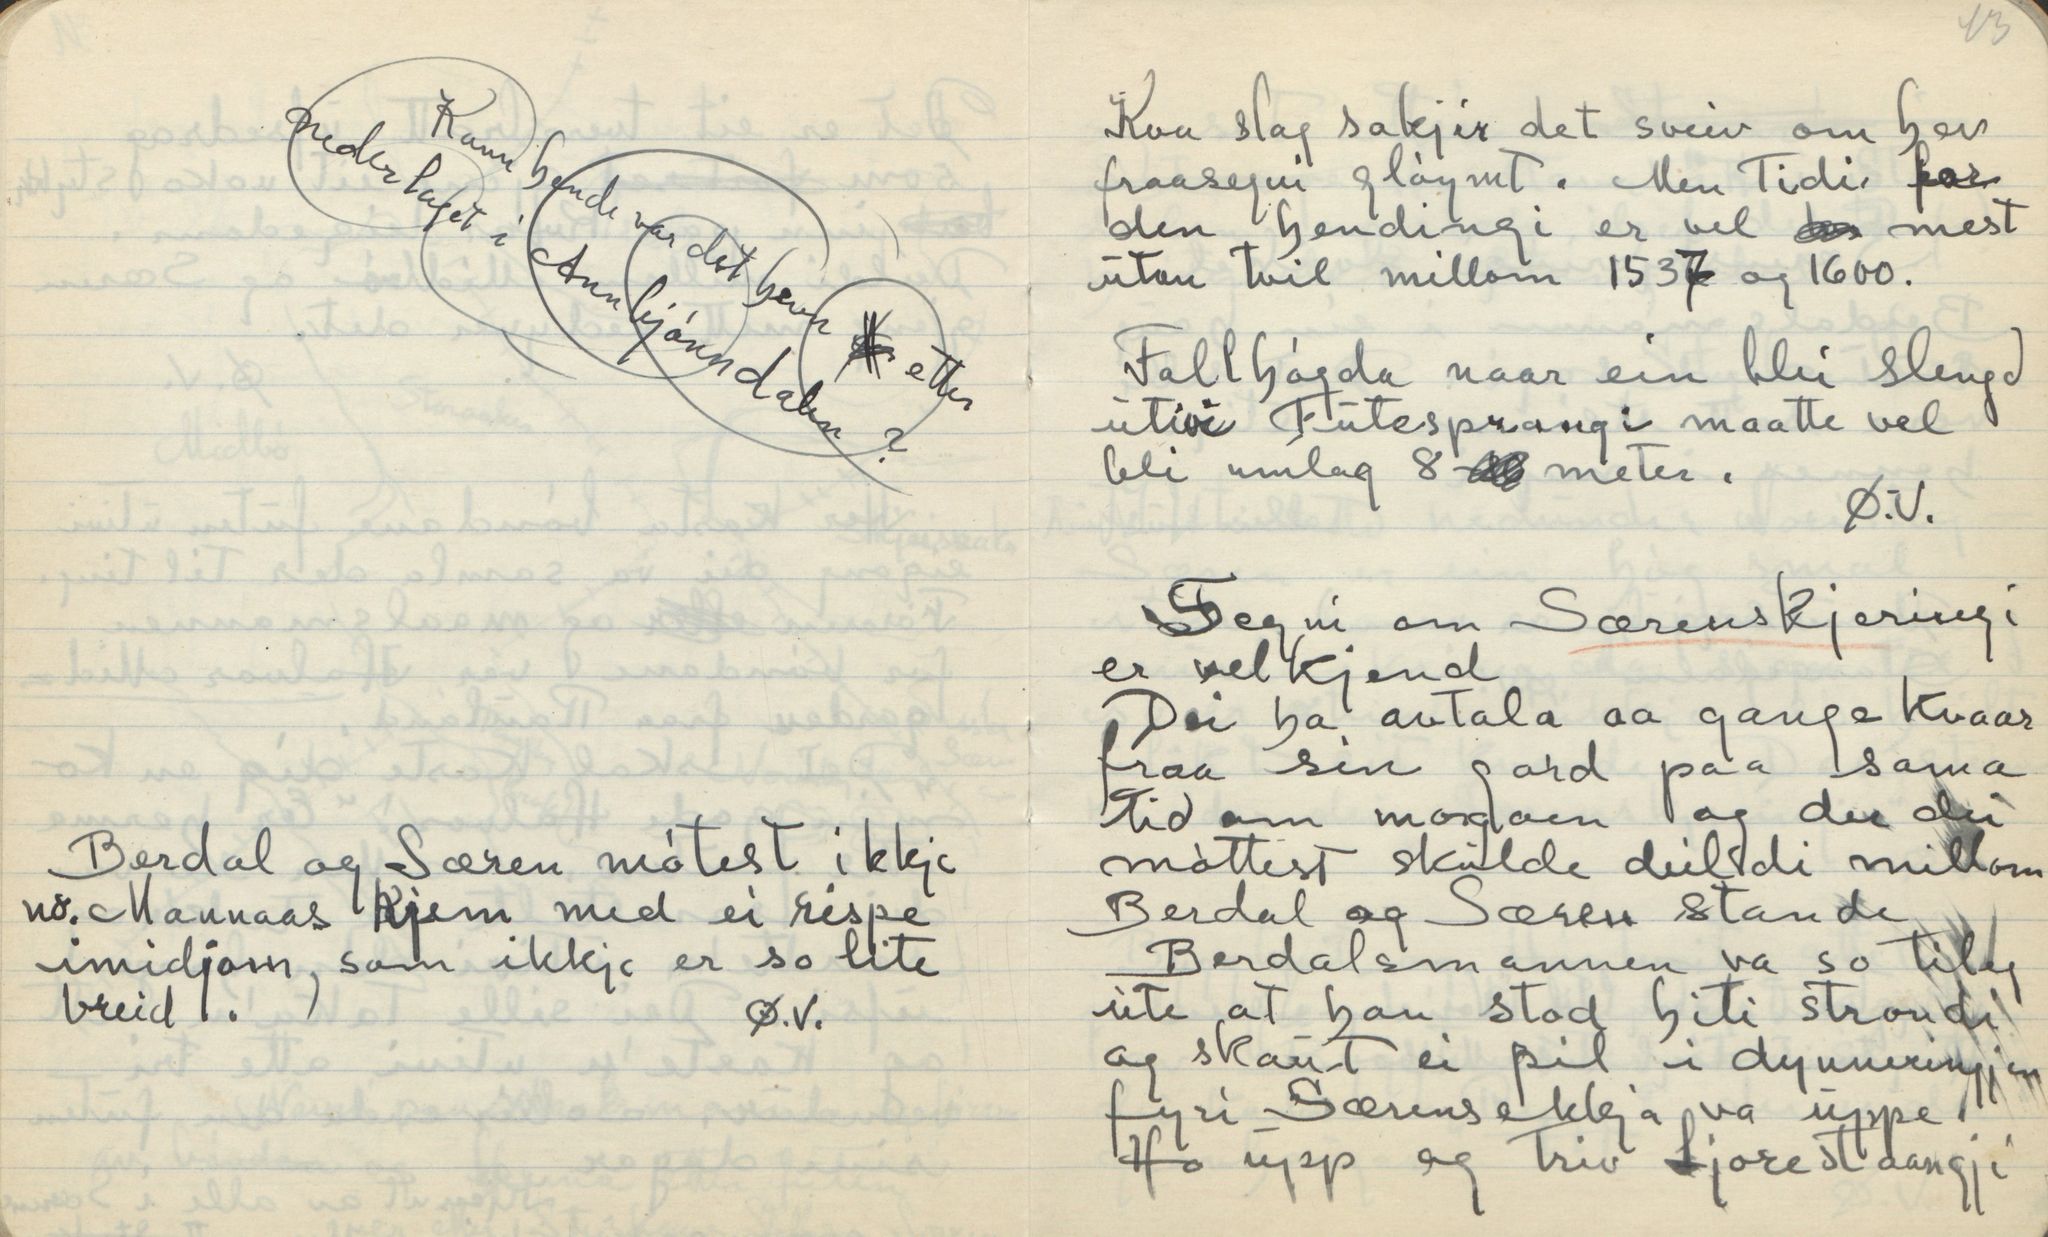 Kann hende var det henn etter
nederlaget i Annbjónndalen?
Berdal og Særen mótest ikkje
no. Mannaas kjem med ei rispe
imidjom, som ikkje er so lite
breid.
Ø.V.
13
Kva slag sakjir det sveiv om hev
fraasegni glóymt. Men Tidi for
den hendingi er vel mest
utan tvil millom 1537 og 1600.
Fallhógda naar ein blei slengd
utivi Futesprangi maatte vel
bli umlag 8 meter.
Ø.V.
Segni om Særenskjeringi
er velkjend
Dei ha avtala aa gange kvaar
fraa sin gard paa sama
tid om morgoen og der dei
móttest skulde deildi millom
Berdal og Særen stande
Berdalsmannen va so tileg
ute at han stod hiti strondi
og skaut ei pil i dynneringjen
fyri Særensekkja va uppe.
Ho upp og treiv stjorestaangji